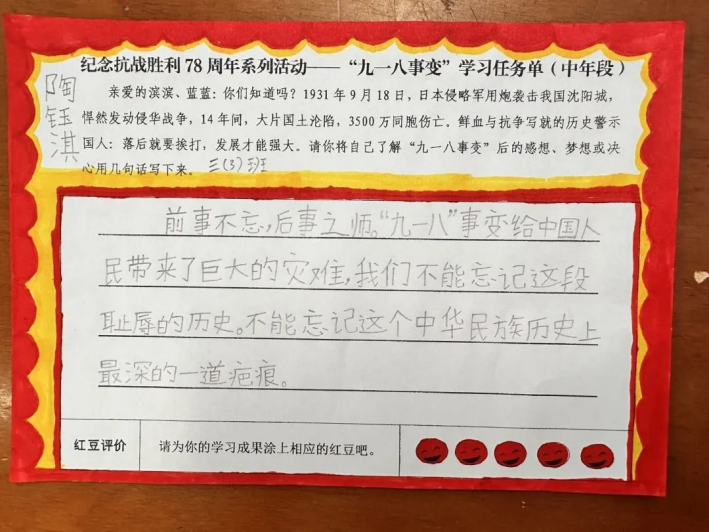 纪念抗战胜利 78 周年系列活动——“九一八事变”学习任务单（中年段）
陶钰淇
亲爱的滨滨、蓝蓝：你们知道吗？1931 年 9 月 18 日，日本侵略军用炮袭击我国沈阳城，
悍然发动侵华战争，14 年间，大片国土沦陷，3500 万同胞伤亡。鲜血与抗争写就的历史警示
国人：落后就要挨打，发展才能强大。请你将自己了解“九一八事变”后的感想、梦想或决
心用几句话写下来。 三(3)班
前事不忘，后事之师。“九一八”事变给中国人
民带来了巨大的灾难，我们不能忘记这段
耻辱的历史。不能忘记这个中华民族历史上
最深的一道疤痕。
红豆评价
请为你的学习成果涂上相应的红豆吧。